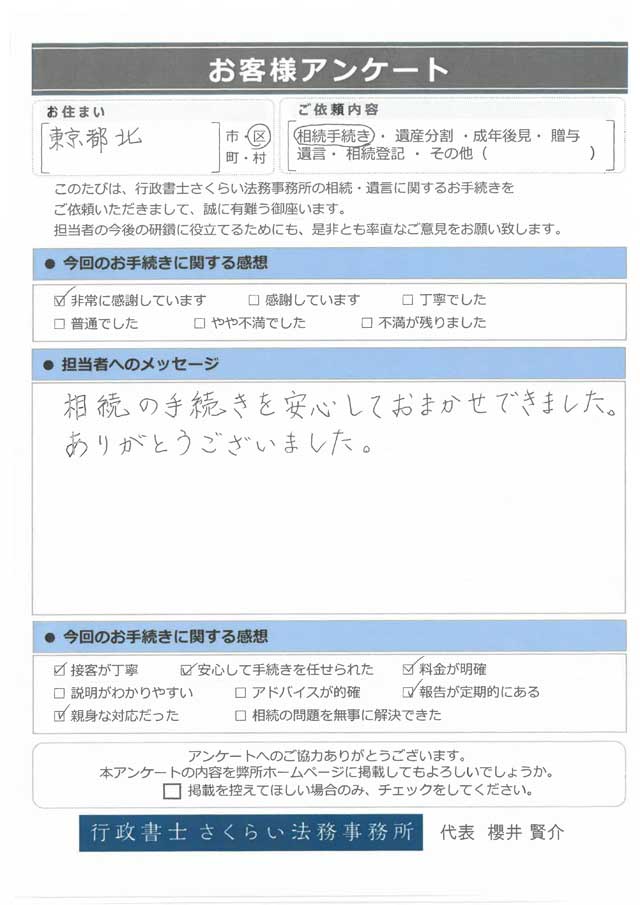 お客様アンケート
お住まい
東京都北 市・区
町・村
ご依頼内容
相続手続き・ 遺産分割 ・成年後見・ 贈与
遺言・ 相続登記 ・ その他（ ）
このたびは、行政書士さくらい法務事務所の相続・遺言に関するお手続きを
ご依頼いただきまして、誠に有難う御座います。
担当者の今後の研鑽に役立てるためにも、是非とも率直なご意見をお願い致します。
● 今回のお手続きに関する感想
☑ 非常に感謝しています □ 感謝しています □ 丁寧でした
□ 普通でした □ やや不満でした □ 不満が残りました
● 担当者へのメッセージ
相続の手続きを安心しておまかせできました。
ありがとうございました。
● 今回のお手続きに関する感想
☑ 接客が丁寧 ☑ 安心して手続きを任せられた ☑ 料金が明確
□ 説明がわかりやすい □ アドバイスが的確 ☑ 報告が定期的にある
☑ 親身な対応だった □ 相続の問題を無事に解決できた
アンケートへのご協力ありがとうございます。
本アンケートの内容を弊所ホームページに掲載してもよろしいでしょうか。
□ 掲載を控えてほしい場合のみ、チェックをしてください。
行政書士 さくらい法務事務所 代表 櫻井 賢介